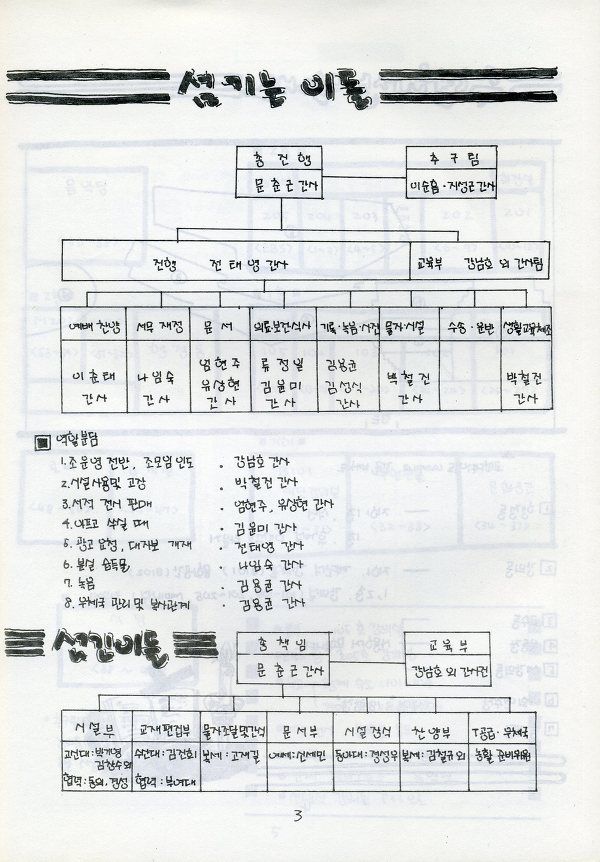 섬기는 이들
총 진 행
문 춘 근 간사
추 구 팀
이순흠·지성근간사
진행 전 태 영 간사
교육부 강남호 외 간사팀
예배 찬양
서무 재정
문 서
의료·보건·식사
기록·녹음·사진
물자·시설
수송·운반
생활교육체조
이 춘 태
간 사
나 임 숙
간 사
엄 현 주
유 상 현
간 사
류 정 일
김 윤 미
간 사
김용균
김성식
간사
박 철 진
간 사
박 철 진
간 사
역할분담
1. 조운영 전반, 조모임 인도 . 강남호 간사
2. 시설사용 및 고장 . 박철진 간사
3. 서적 전시 판매 . 엄현주, 유상현 간사
4. 아프고 쑤실 때 . 김윤미 간사
5. 광고 요청, 대자보 게재 . 전태영 간사
6. 분실 습득물 . 나임숙 간사
7. 녹음 . 김용균 간사
8. 우체국 관리 및 복사관계 . 김용균 간사
섬긴이들
총 책 임
문 춘 근 간사
교 육 부
강남호 외 간사진
시 설 부
교재편집부
물자조달및간식
문 서 부
시 설 장식
찬 양 부
T공급·우체국
고신대:박개영
김창수외
협력:동의,경성
수산대:김진희
협력:부여대
북세:고재길
여세:신세민
동아대:정성우
북세:김철규 외
농활 준비위원
3